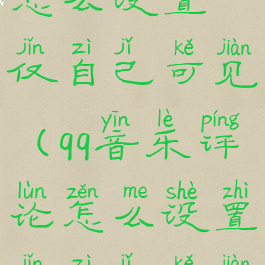 怎么设置
jǐn zì jǐ kě jiàn
仅自己可见
yīn lè píng
(qq音乐评
lùn zěn me shè zhì
论怎么设置
jǐn zì jǐ kě jiàn